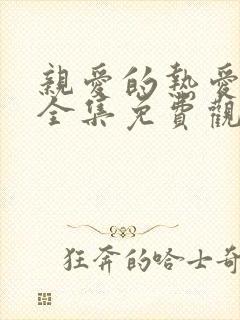 親愛的熱愛
全集免費觀
狂奔的哈士奇